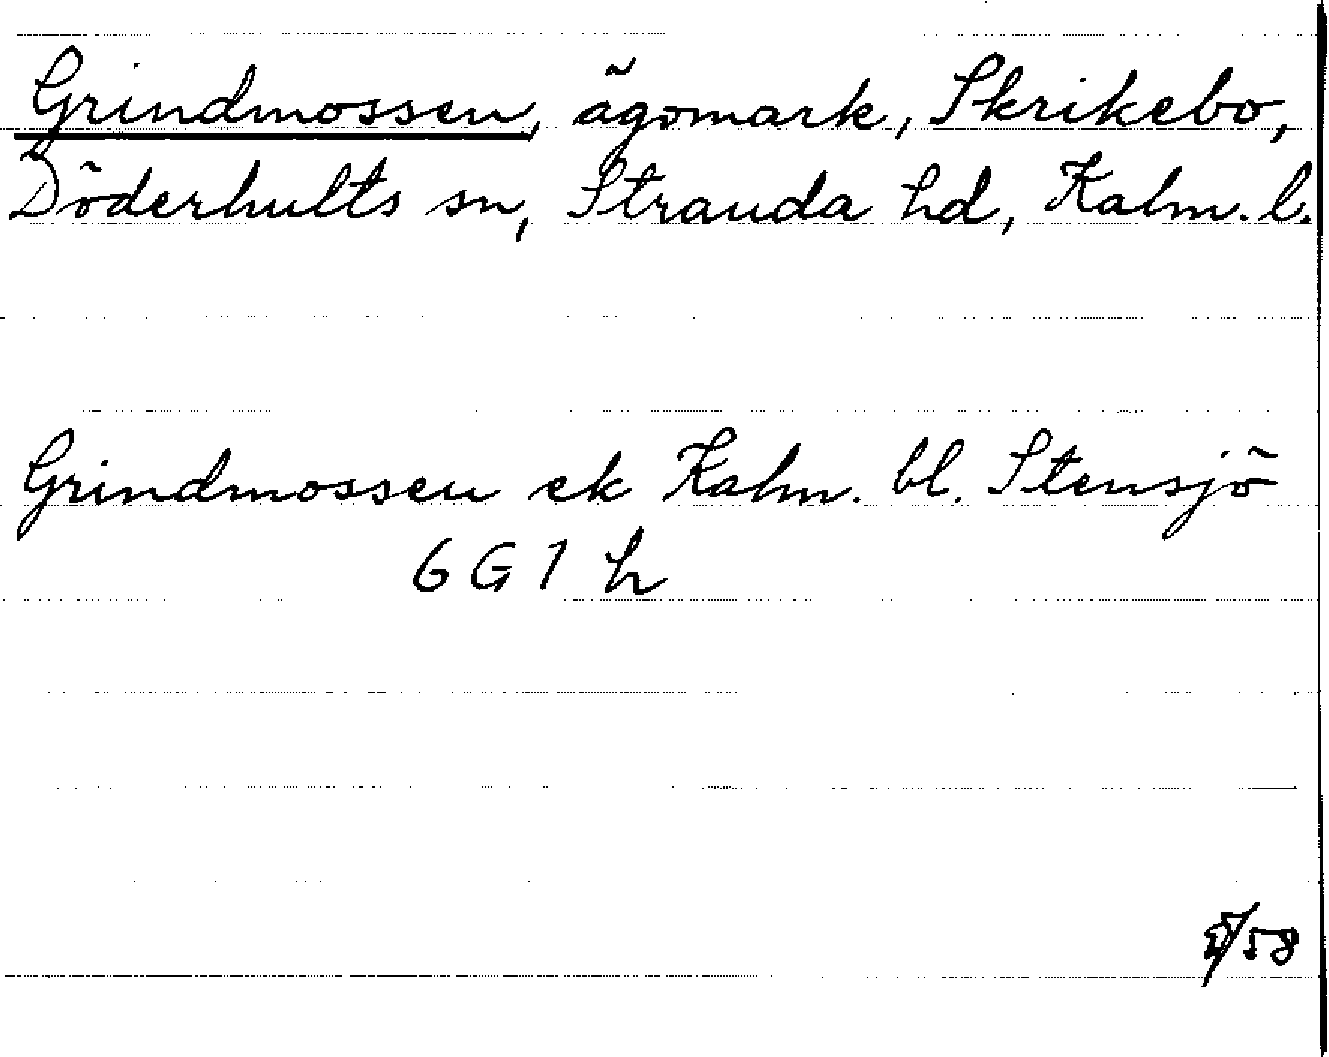 Grindmossen, ägomark, Skrikebo,
Döderhults sn, Stranda hd, Kalm. l.
Grindmossen ek Kalm. bl. Stensjö
6 G 1 h